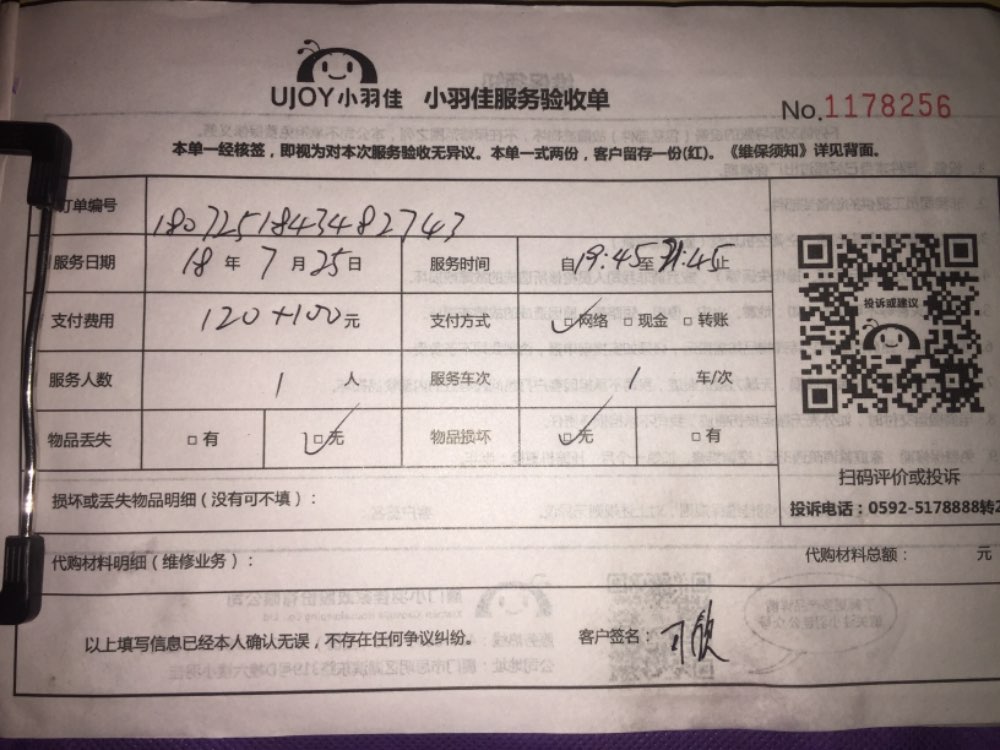 UJOY小羽佳 小羽佳服务验收单 No.1178256
本单一经核签，即视为对本次服务验收无异议。本单一式两份，客户留存一份(红)。《维保须知》详见背面。
订单编号 180725184348２743
服务日期 18年7月25日 服务时间 自19:45至21:45止
支付费用 120+100元 支付方式 ☑网络 □现金 □转账
服务人数 1人 服务车次 1车/次
物品丢失 □有 ☑无 物品损坏 ☑无 □有
投诉或建议
扫码评价或投诉
损坏或丢失物品明细（没有可不填）：
投诉电话：0592-5178888转2
代购材料明细（维修业务）： 代购材料总额： 元
以上填写信息已经本人确认无误，不存在任何争议纠纷。 客户签名：可欣